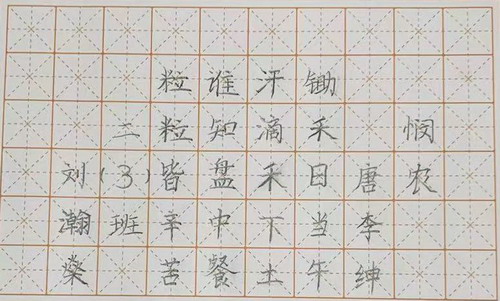 悯农
唐李绅
锄禾日当午
汗滴禾下土
谁知盘中餐
粒粒皆辛苦
二(3)班
刘瀚